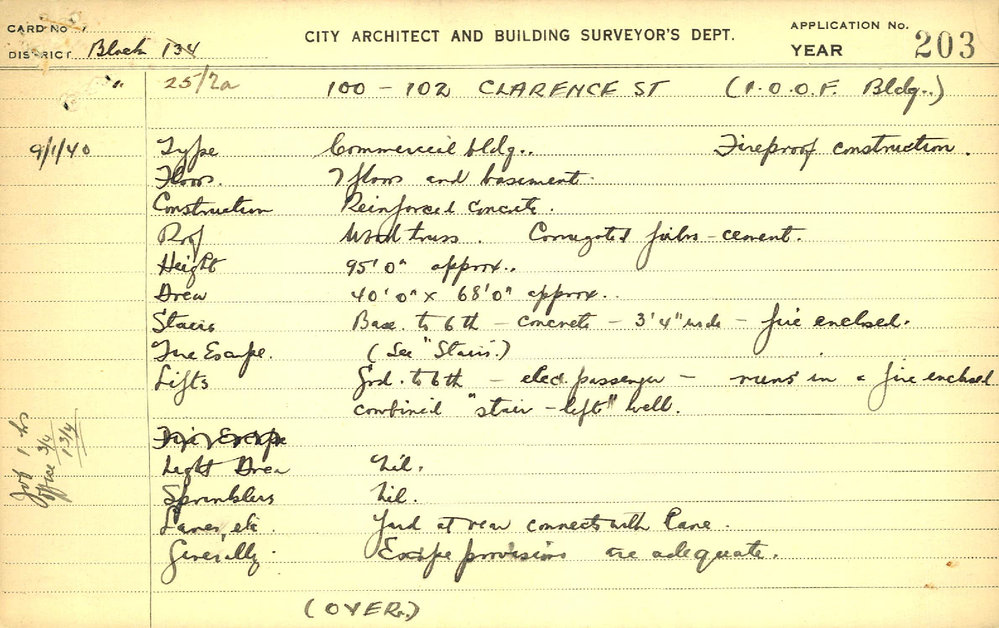 CARD No
CITY ARCHITECT AND BUILDING SURVEYOR'S DEPT.
APPLICATION No.
DISTRICT Block 134
YEAR 203
" 25/2a 100 - 102 CLARENCE ST (I.O.O.F. Bldg.)
9/1/40 Type Commercial bldg. Fireproof construction.
Floors. 7 floors and basement.
Construction Reinforced concrete.
Roof Wood truss. Corrugated fibro-cement.
Height 95'0" approx.
Area 40'0" x 68'0" approx.
Stairs Base. to 6th - concrete - 3'4" wide - fire enclosed.
Fire Escape. (See "Stairs.)
Lifts Grd. to 6th - elec. passenger - runs in a fire enclosed
combined "stair-lift" well.
Fire Escape
Light Area Nil.
Sprinklers Nil.
Lanes, etc. Yard at rear connects with lane.
Generally. Escape provisions are adequate.
Job 1 hr
office 3/4
1 3/4
(OVER.)